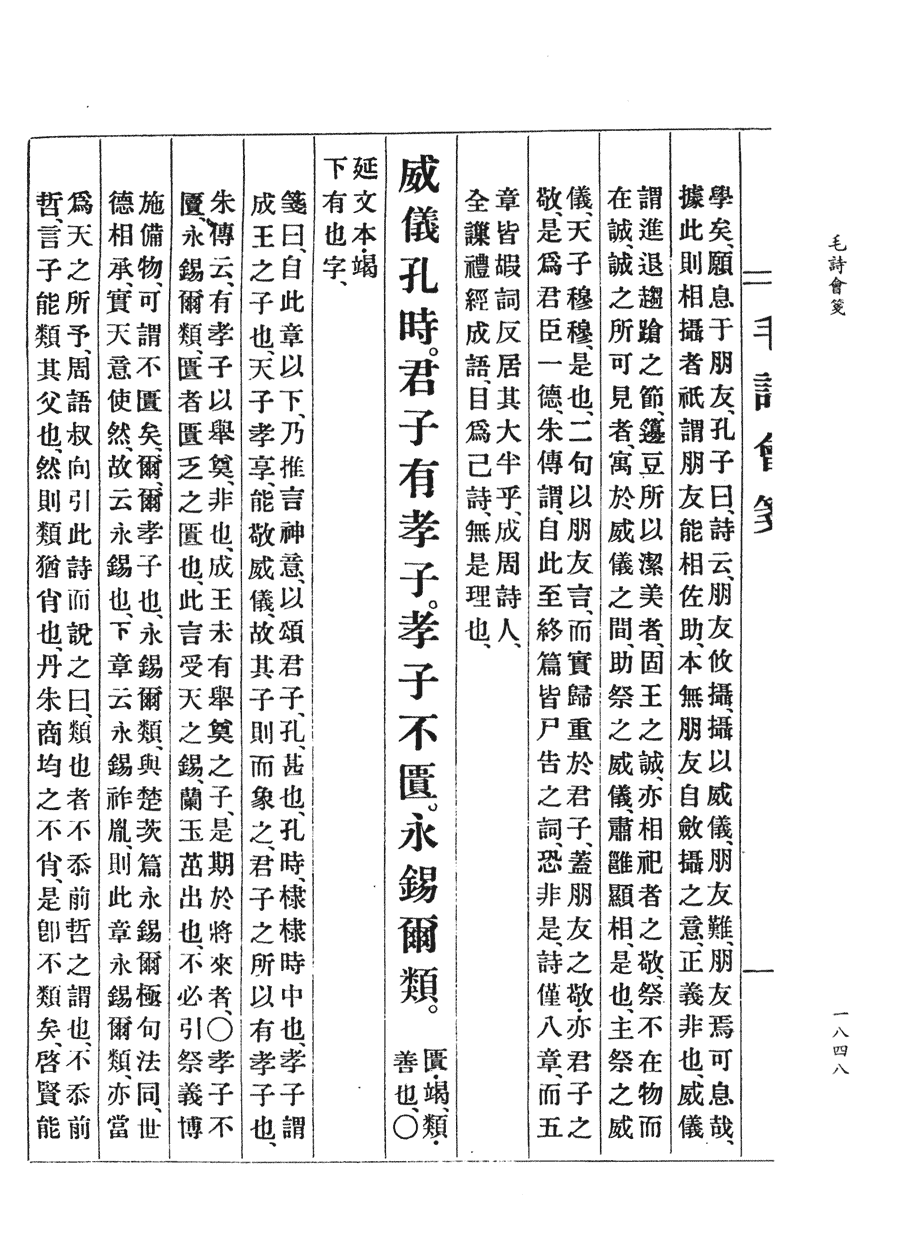 毛詩會箋
一八四八
毛詩會箋
學矣、願息于朋友、孔子曰、詩云、朋友攸攝、攝以威儀、朋友難、朋友焉可息哉、
據此則相攝者祇謂朋友能相佐助、本無朋友自斂攝之意、正義非也、威儀
謂進退趨蹌之節、籩豆所以潔美者、固王之誠、亦相祀者之敬、祭不在物而
在誠、誠之所可見者、寓於威儀之間、助祭之威儀、肅雝顯相、是也、主祭之威
儀、天子穆穆、是也、二句以朋友言、而實歸重於君子、蓋朋友之敬、亦君子之
敬、是爲君臣一德、朱傳謂、自此至終篇皆尸告之詞、恐非是、詩僅八章、而五
章皆嘏詞反居其大半乎、成周詩人、
全譔禮經成語、目爲己詩、無是理也、
威儀孔時。君子有孝子。孝子不匱。永錫爾類。
匱・竭、類・
善也、〇
延文本・竭
下有也字、
箋曰、自此章以下、乃推言神意、以頌君子、孔、甚也、孔時、棣棣時中也、孝子謂
成王之子也、天子孝享、能敬威儀、故其子則而象之、君子之所以有孝子也、
朱傳云、有孝子以舉奠、非也、成王未有舉奠之子、是期於將來者、〇孝子不
匱、永錫爾類、匱者匱乏之匱也、此言受天之錫、蘭玉茁出也、不必引祭義博
施備物、可謂不匱矣、爾、爾孝子也、永錫爾類、與楚茨篇永錫爾極句法同、世
德相承、實天意使然、故云永錫也、下章云永錫祚胤、則此章永錫爾類、亦當
爲天之所予、周語叔向引此詩而說之曰、類也者不忝前哲之謂也、不忝前
哲、言子能類其父也、然則類猶肖也、丹朱商均之不肖、是卽不類矣、啓賢能